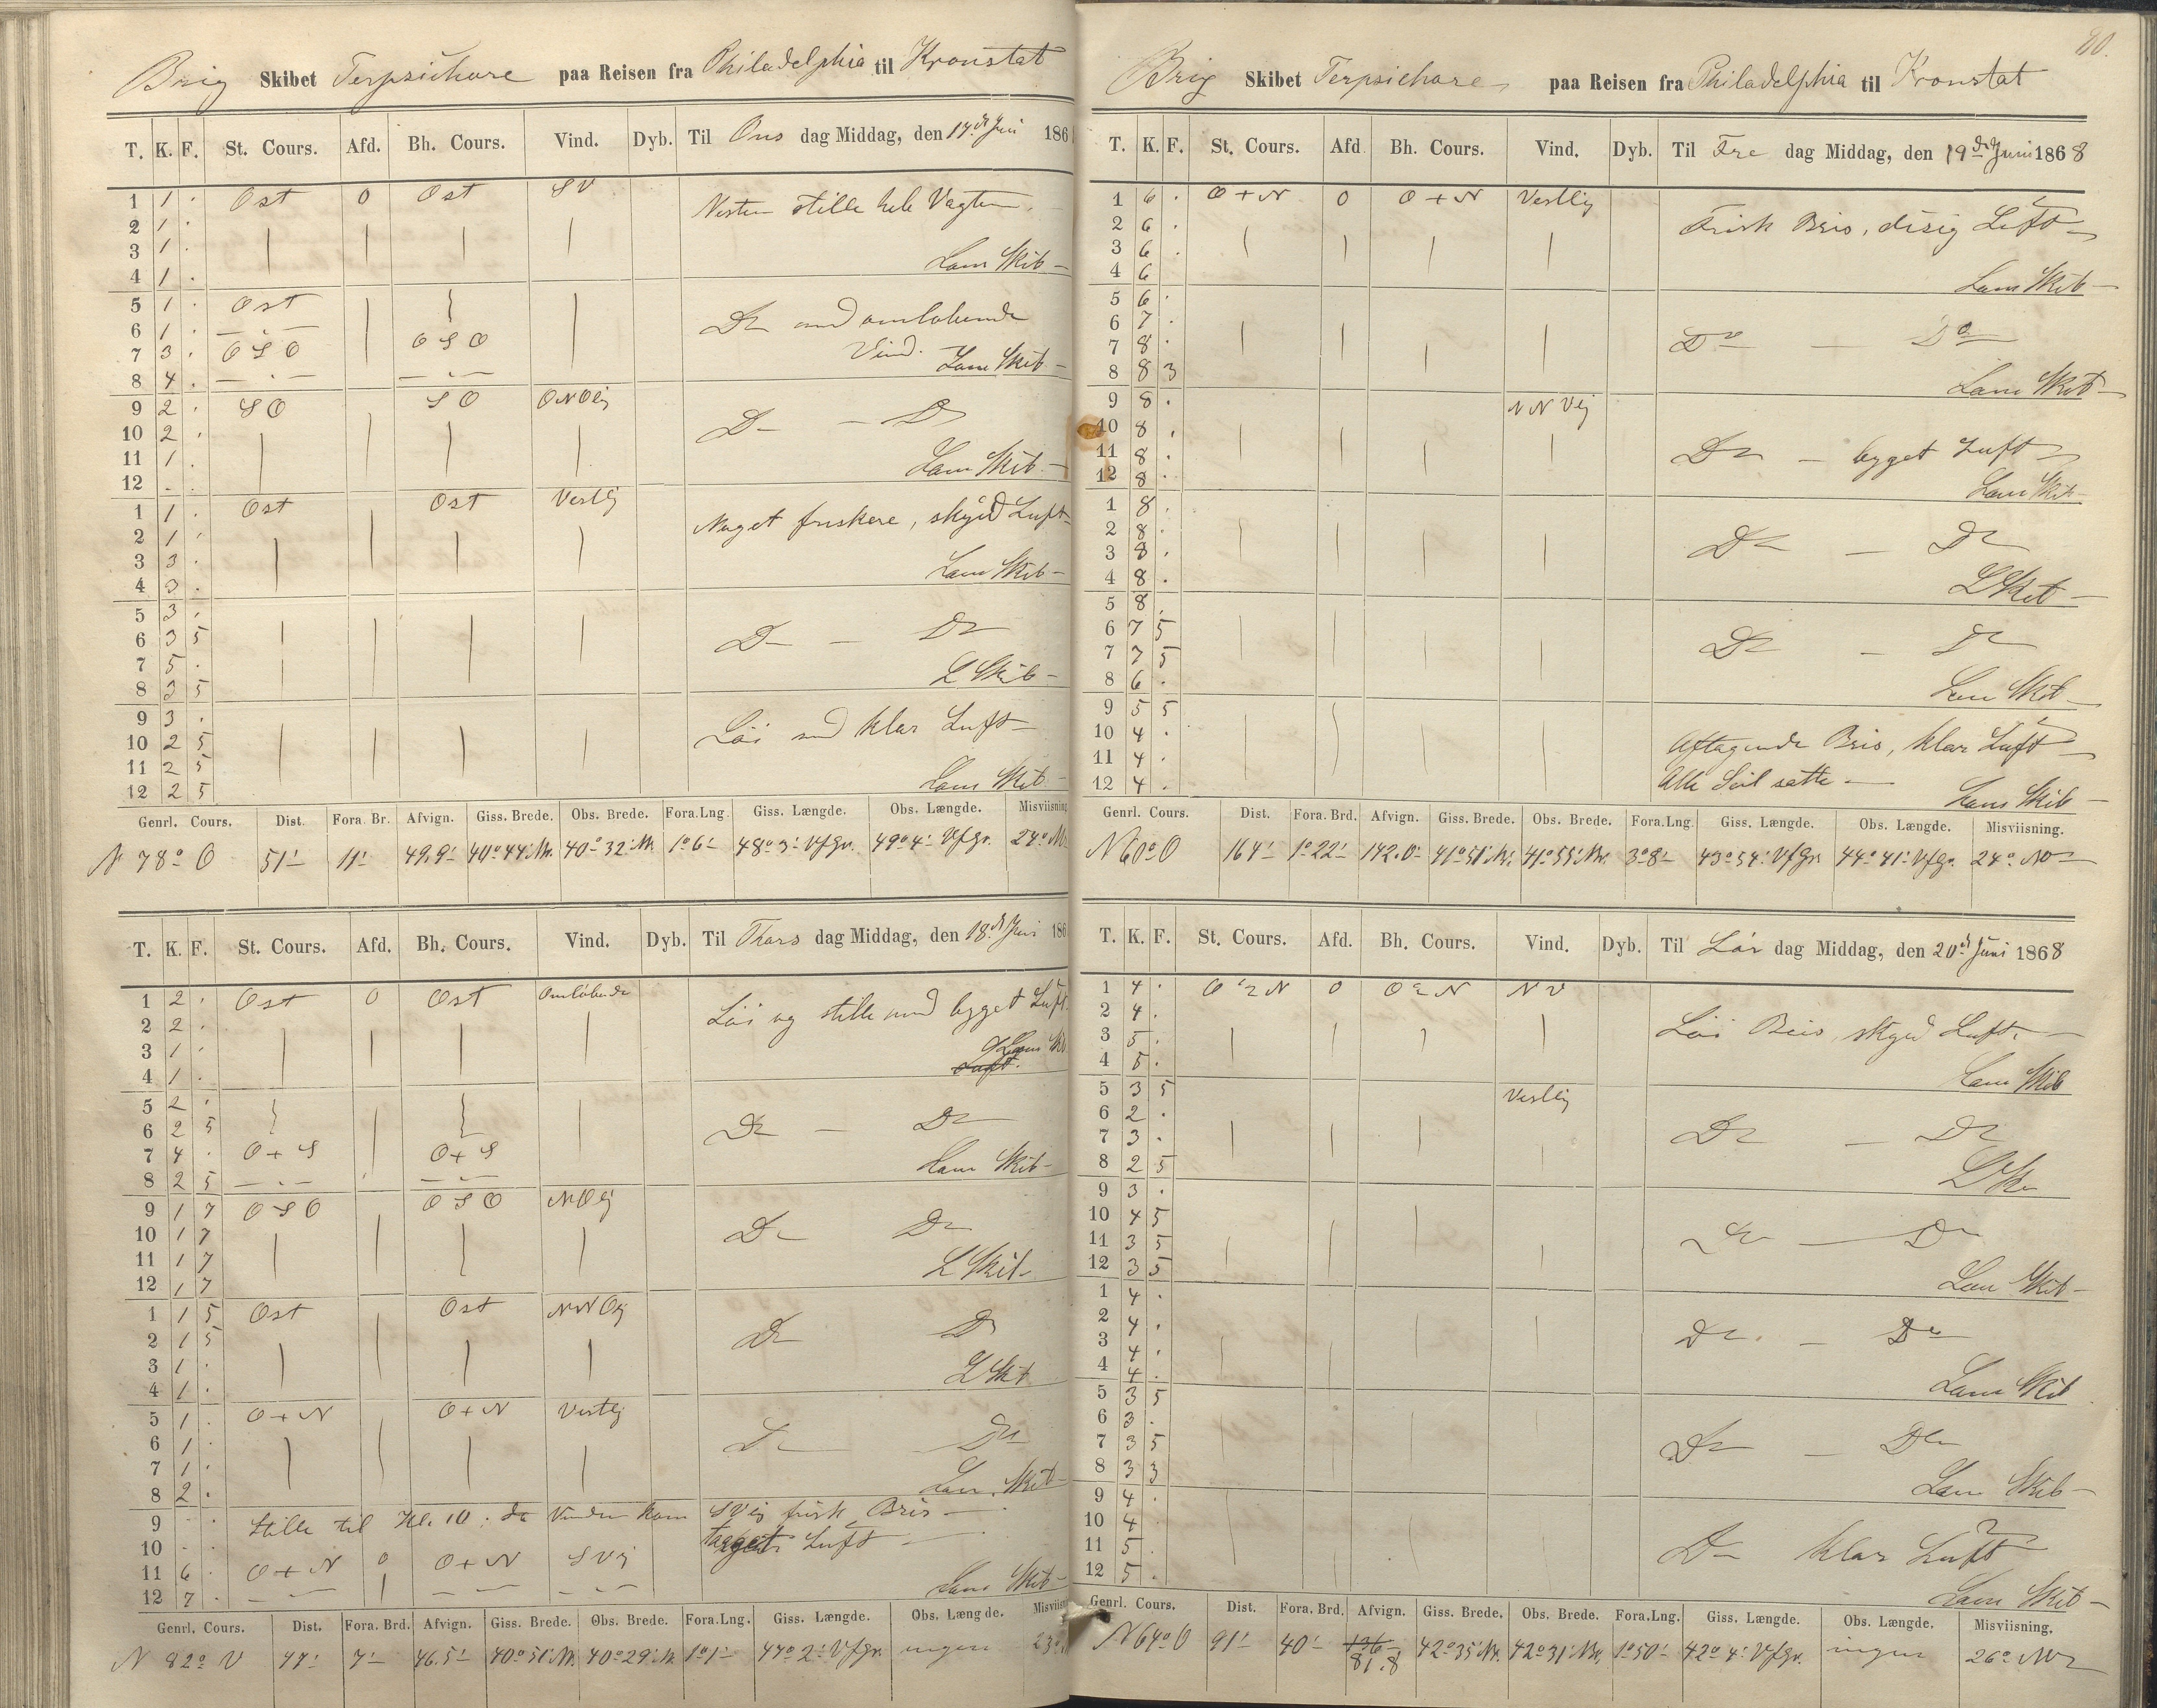 Brig Skibet Terpsichore paa Reisen fra Philadelphia til Kronstat
T. K. F. St. Cours. Afd. Bh. Cours. Vind. Dyb. Til Ons dag Middag, den 17de Juni 186
1 1 . Ost 0 Ost SV Nesten stille hele Vagten.
2 1 .
3 1 . Læns Skib
4 1 .
5 1 . Ost
6 1 . Do med omløbende
7 3 . OSO OSO Vind. Læns Skib
8 4 .
9 2 . SO SO ONOlig
10 2 . Do Do
11 1 . Læns Skib
12 . .
1 1 . Ost Ost Vestlig Noget friskere, skyed Luft
2 1 .
3 3 . Læns Skib
4 3 .
5 3 .
6 3 5 Do — Do
7 5 .
8 3 5 L Skib
9 3 . Löi med klar Luft
10 2 5
11 2 5
12 2 5 Læns Skib
Genrl. Cours. Dist. Fora. Br. Afvign. Giss. Brede. Obs. Brede. Fora.Lng. Giss. Længde. Obs. Længde. Misviisning
N 78° O 51' 11' 49,9' 40°44' N. 40°32' N. 1°6' 48°3' VfGr. 49°4' VfGr. 24° N
T. K. F. St. Cours. Afd. Bh. Cours. Vind. Dyb. Til Thors dag Middag, den 18de Juni 186
1 2 . Ost 0 Ost Omløbende Löi og stille med bygget Luft.
2 2 .
3 1 . Læns Skb
4 1 . Luft.
5 2 .
6 2 5 Do — Do
7 4 . O+S O+S
8 2 5 Læns Skib
9 1 7 OSO OSO NOlig
10 1 7 Do Do
11 1 7 L Skib
12 1 7
1 1 5 Ost Ost NNOlig
2 1 5 Do Do
3 1 . L Skib
4 1 .
5 1 . O+N O+N Vestlig
6 1 . Do Do
7 1 .
8 2 . Læns Skib
9 . . Stille til Kl. 10, da Vinden kom SVlig frisk Bris
10 . . Luft
11 6 . O+N 0 O+N SVlig
12 7 . Læns Skib
Genrl. Cours. Dist. Fora. Brd. Afvign. Giss. Brede. Obs. Brede. Fora.Lng. Giss. Længde. Obs. Længde. Misviisn
N 82° V 47' 7' 46,5' 40°51' N. 40°29' N. 1°1' 47°2' VfGr. ingen 23°
80.
Brig Skibet Terpsichore paa Reisen fra Philadelphia til Kronstat
T. K. F. St. Cours. Afd Bh. Cours. Vind. Dyb. Til Fre dag Middag, den 19de Juni 1868
1 6 . O+N 0 O+N Vestlig
2 6 . Frisk Bris, disig Luft
3 6 .
4 6 Læns Skib
5 6 .
6 7 . Do — Do
7 8 .
8 8 3 Læns Skib
9 8 . NNVlig
10 8 .
11 8 . Do — bygget Luft
12 8 . Læns Skib
1 8 .
2 8 .
3 8 . Do — Do
4 8 . L Skib
5 8 .
6 7 5
7 7 5 Do — Do
8 6 . Læns Skib
9 5 5
10 4 . Aftagende Bris, klar Luft
11 4 .
12 4 . Alle Seil satte — Læns Skib
Genrl. Cours. Dist. Fora. Brd. Afvign. Giss. Brede. Obs. Brede. Fora.Lng. Giss. Længde. Obs. Længde. Misviisning.
N 60° O 164' 1°22' 142.0' 41°51' N. 41°55' N. 3°8' 43°54' VfGr. 44°41' VfGr. 24° NV
T. K. F. St. Cours. Afd. Bh. Cours. Vind. Dyb. Til Lör dag Middag, den 20de Juni 1868
1 4 . O ½ N 0 O ½ N NV
2 4 . Löi Bris, skyed Luft.
3 5 .
4 5 . Læns Skib
5 3 5 Vestlig
6 2 . Do — Do
7 3 .
8 2 5 L Sk
9 3 .
10 4 5 Do — Do
11 3 5
12 3 5 Læns Skib
1 4 .
2 4 . Do — Do
3 4 .
4 4 . Læns Skib
5 3 5
6 3 .
7 3 5 Do — Do
8 3 3 Læns Skib
9 4 .
10 4 .
11 5 . Do klar Luft
12 5 . Læns Skib
Genrl. Cours. Dist. Fora. Brd. Afvign. Giss. Brede. Obs. Brede. Fora.Lng. Giss. Længde. Obs. Længde. Misviisning.
N 64° O 91' 40' 136 81.8 42°35' N. 42°31' N. 1°50' 42°4' VfGr. ingen 26° NV